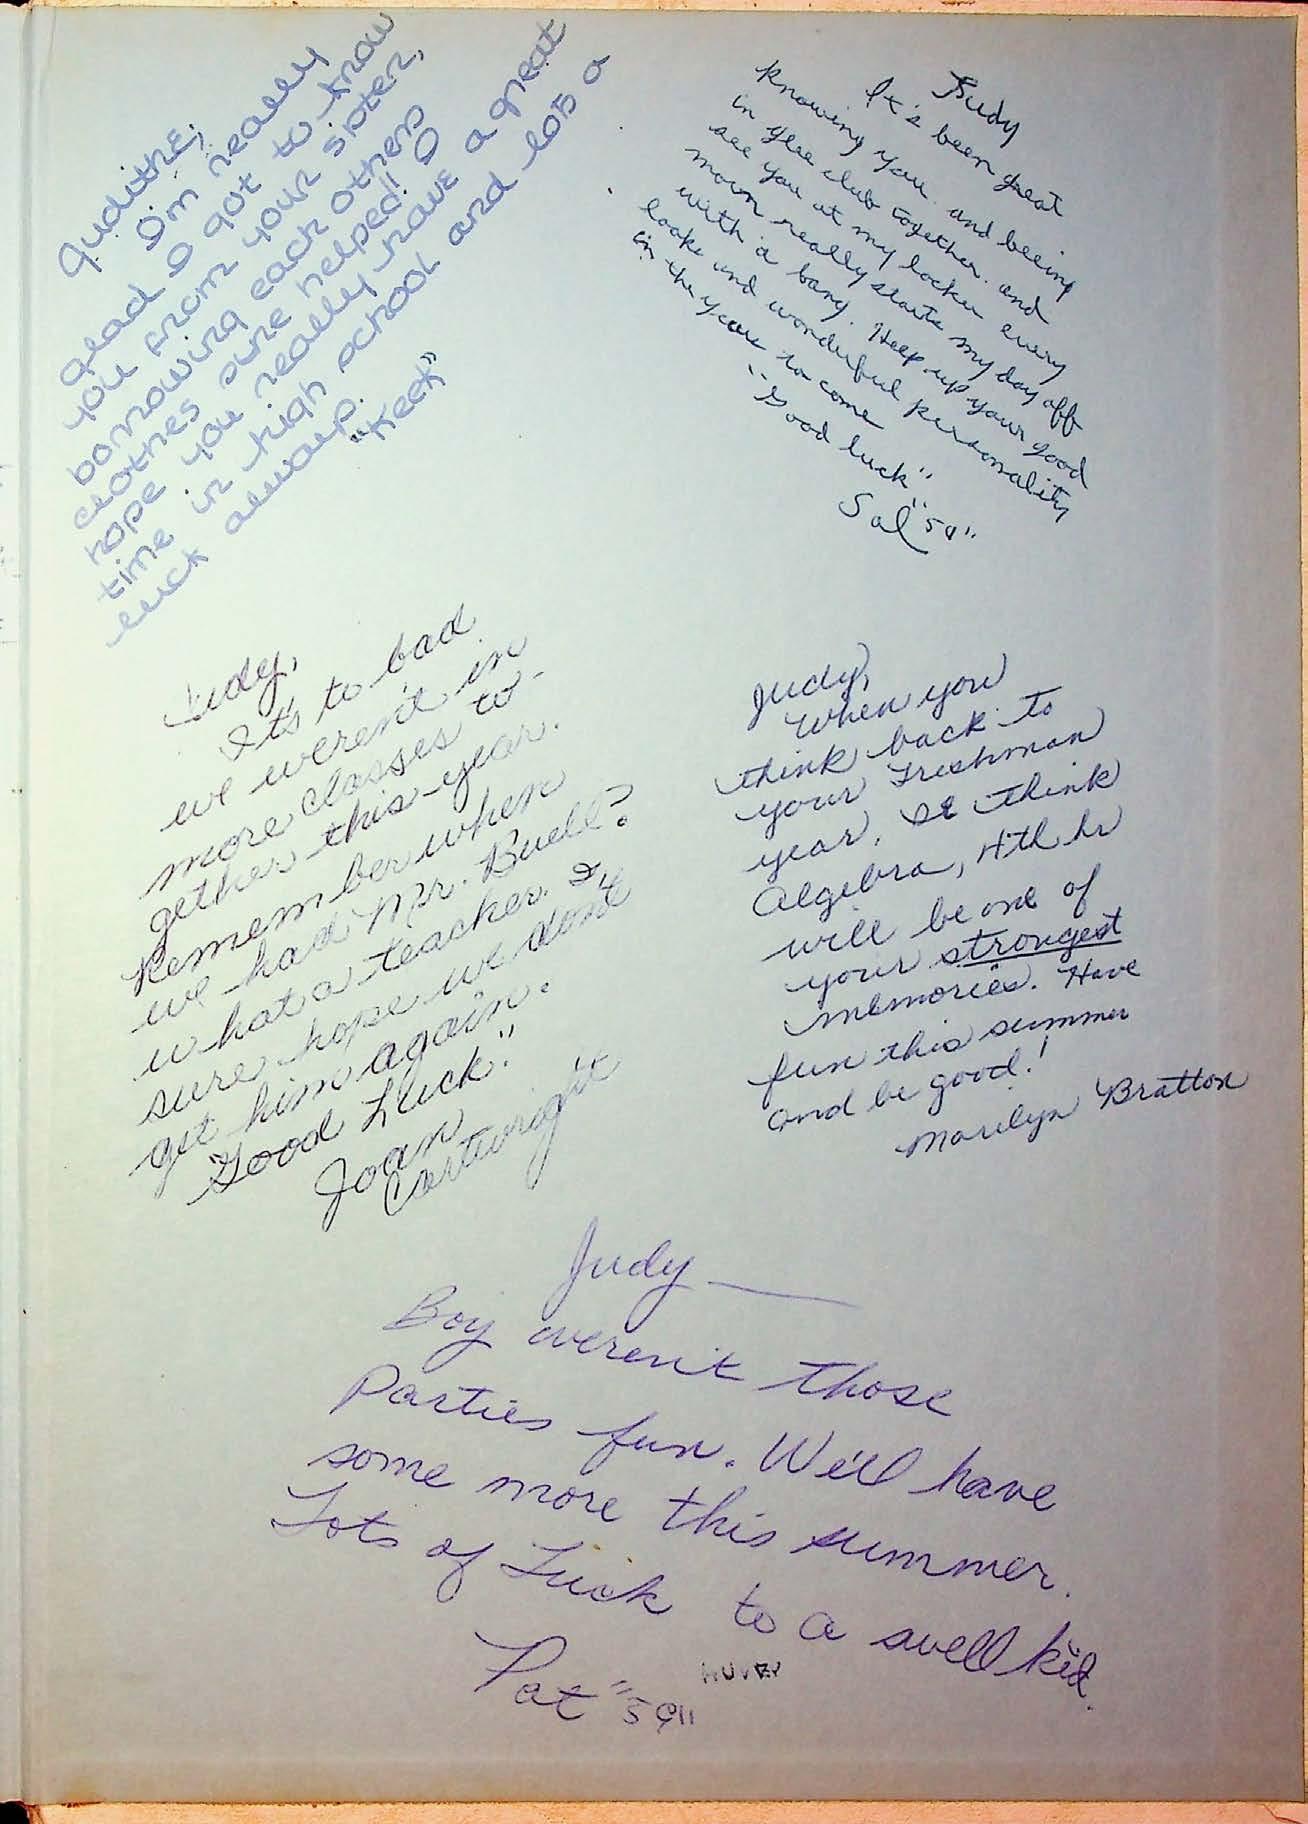 Judithe,
I'm really
glad I got to know
you from your sister,
borrowing each others
clothes sure helped!! I
hope you really have a great
time in high school and lots a
luck always.
"Keek"
Judy
It's been great
knowing you and being
in glee club together. and
see you at my locker every
morn really starts my day off
with a bang. Keep up your good
looks and wonderful personality
in the years to come
"Good luck"
Sal "59"
Judy,
It's to bad
we weren't in
more classes to-
gether this year.
Remember when
we had Mr. Buell?
what a teacher. I
sure hope we don't
get him again.
"Good Luck."
Joan
Cartwright
Judy,
When you
think back to
your Freshman
year, I think
Algebra, 4th hr
will be one of
your strongest
memories. Have
fun this summer
and be good!
Marilyn Bratton
Judy —
Boy weren't those
Parties fun. We'll have
some more this summer.
Lots of Luck to a swell kid.
Pat "59"